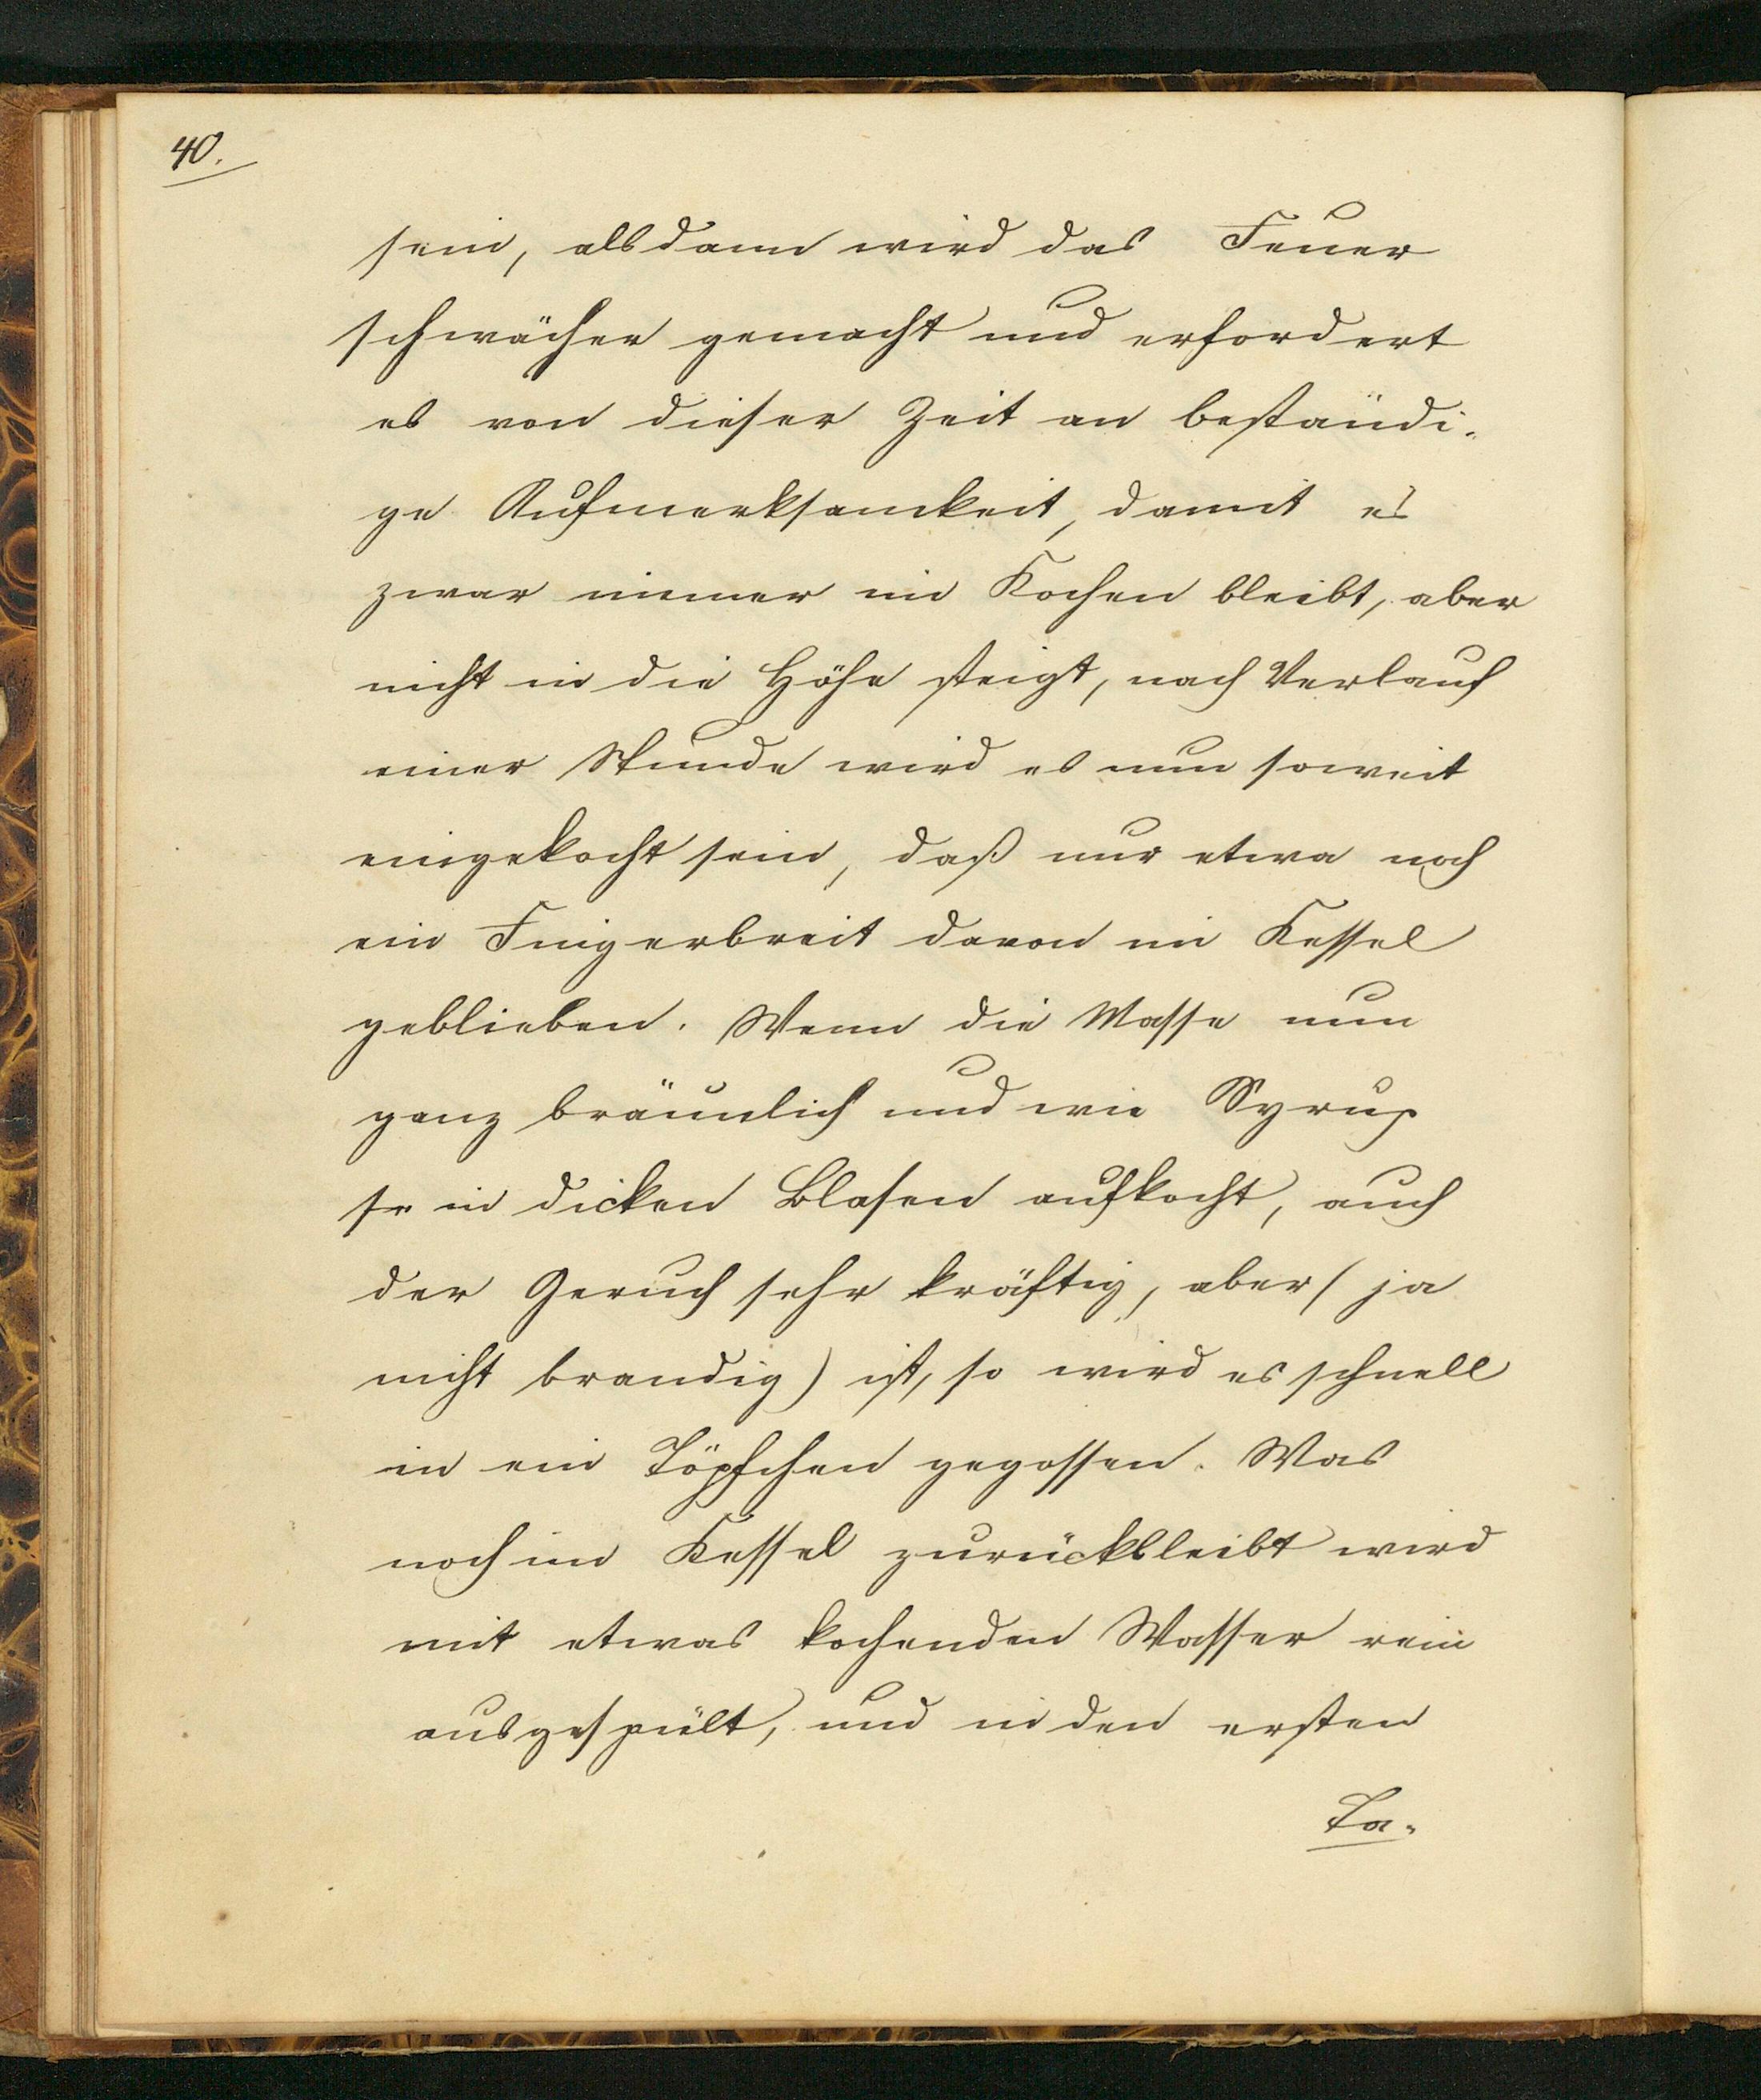 40.
sein, alsdann wird das Feuer
schwächer gemacht und erfordert
es von dieser Zeit an beständi-
ge Aufmerksamkeit, damit es
zwar immer im Kochen bleibt, aber
nicht in die Höhe steigt, nach Verlauf
einer Stunde wird es nun soweit
eingekocht sein, daß nur etwa noch
ein Fingerbreit davon im Kessel
geblieben. Wenn die Masse nun
ganz bräunlich und wie Syrup
so in dicken Blasen aufkocht, auch
der Geruch sehr kräftig, aber (ja
nicht brandig) ist, so wird es schnell
in ein Töpfchen gegossen. Was
noch im Kessel zurückbleibt wird
mit etwas kochenden Wasser rein
ausgespült, und in den ersten
Ta-